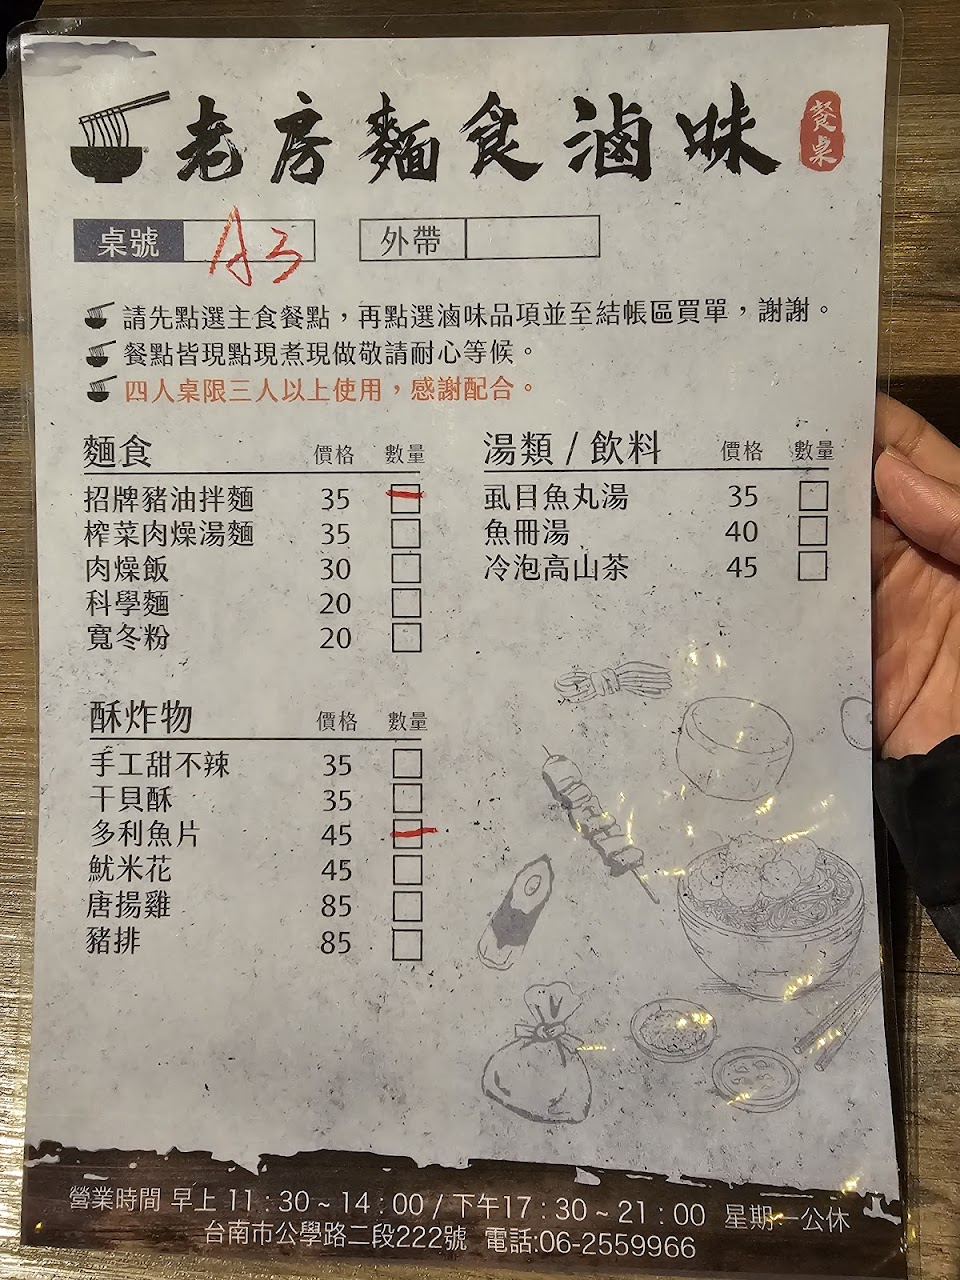 老房麵食滷味 餐桌
桌號 A3 外帶
請先點選主食餐點，再點選滷味品項並至結帳區買單，謝謝。
餐點皆現點現煮現做敬請耐心等候。
四人桌限三人以上使用，感謝配合。
麵食 價格 數量
招牌豬油拌麵 35
榨菜肉燥湯麵 35
肉燥飯 30
科學麵 20
寬冬粉 20
湯類 / 飲料 價格 數量
虱目魚丸湯 35
魚冊湯 40
冷泡高山茶 45
酥炸物 價格 數量
手工甜不辣 35
干貝酥 35
多利魚片 45
魷米花 45
唐揚雞 85
豬排 85
營業時間 早上 11：30 ~ 14：00 / 下午17：30 ~ 21：00 星期一公休
台南市公學路二段222號 電話:06-2559966